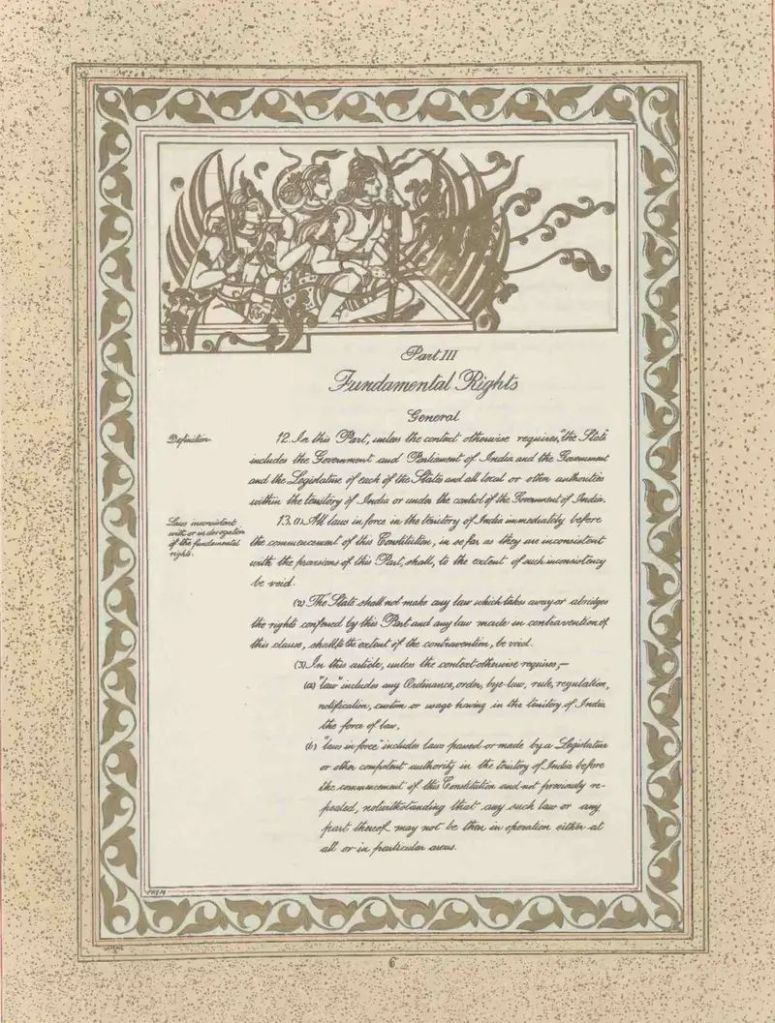 Part III
Fundamental Rights
General
Definition.
12. In this Part, unless the context otherwise requires, "the State"
includes the Government and Parliament of India and the Government
and the Legislature of each of the States and all local or other authorities
within the territory of India or under the control of the Government of India.
Laws inconsistent
with or in derogation
of the fundamental
rights.
13. (1) All laws in force in the territory of India immediately before
the commencement of this Constitution, in so far as they are inconsistent
with the provisions of this Part, shall, to the extent of such inconsistency
be void.
(2) The State shall not make any law which takes away or abridges
the rights conferred by this Part and any law made in contravention of
this clause, shall, to the extent of the contravention, be void.
(3) In this article, unless the context otherwise requires,—
(a) "law" includes any Ordinance, order, bye-law, rule, regulation,
notification, custom or usage having in the territory of India
the force of law;
(b) "laws in force" includes laws passed or made by a Legislature
or other competent authority in the territory of India before
the commencement of this Constitution and not previously re-
pealed, notwithstanding that any such law or any
part thereof may not be then in operation either at
all or in particular areas.
6